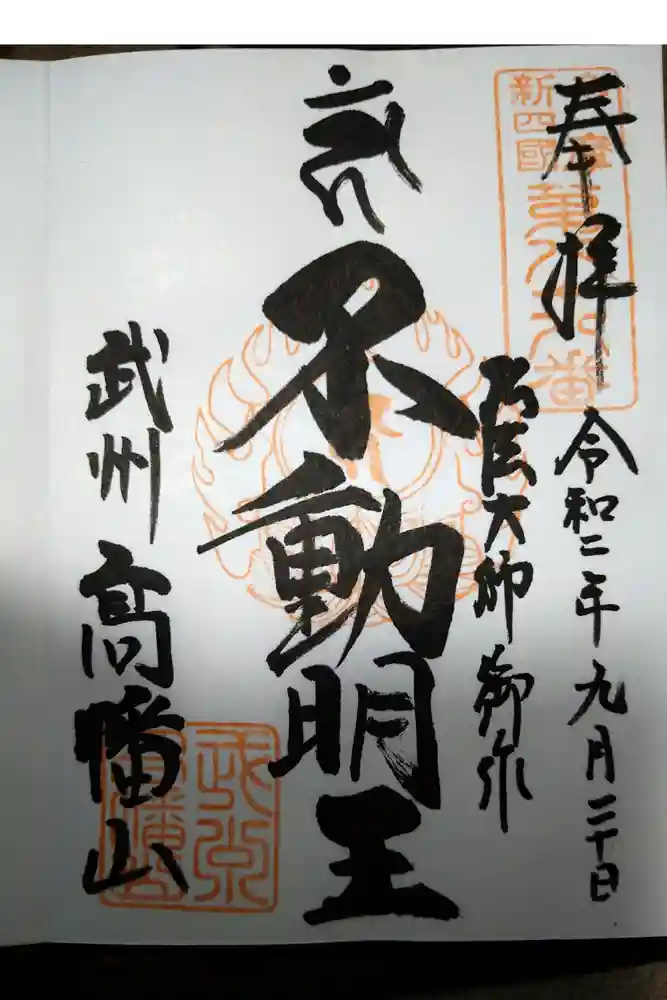 奉拝
令和二年九月二十日
弘法大師御作
不動明王
武州
高幡山
新四國
第八十八番
武州
高幡山